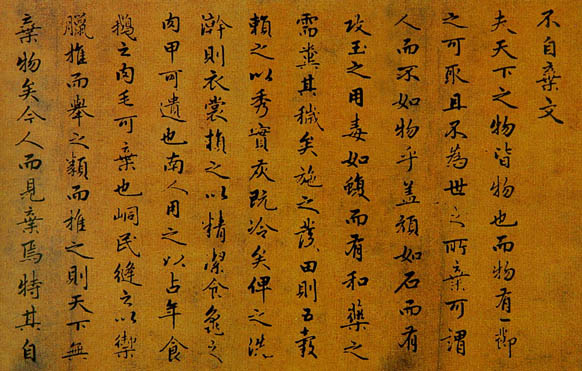 不自棄文
夫天下之物皆物也而物有一節
之可取且不為世之所棄可謂
人而不如物乎蓋頑如石而有
攻玉之用毒如蝮而有和藥之
需糞其穢矣施之發田則五穀
賴之以秀實灰既冷矣俾之洗
澣則衣裳損之以精潔食龜之
肉甲可遺也南人用之以占年食
鵝之肉毛可棄也峒民縫之以禦
臘推而舉之類而推之則天下無
棄物矣今人而見棄焉特其自